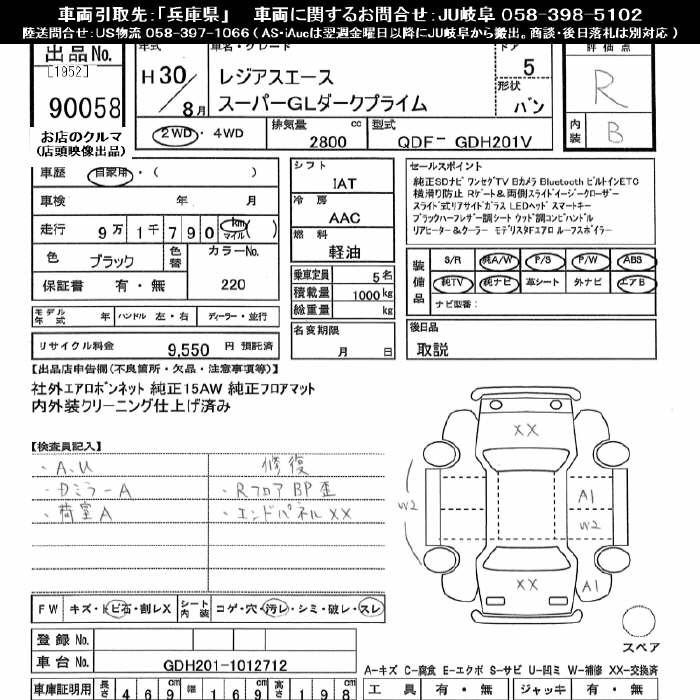 車両引取先:「兵庫県」 車両に関するお問合せ:JU岐阜 058-398-5102
陸送問合せ:US物流 058-397-1066 ( AS・iAucは翌週金曜日以降にJU岐阜から搬出。商談・後日落札は別対応 )
出品No. 年式 車名・グレード ドア 評価点
[1952]
90058
H30/8月
レジアスエース
スーパーGLダークプライム
5
形状
バン
R
内装 B
お店のクルマ
(店頭映像出品)
2WD ・ 4WD
排気量 cc 2800
型式 QDF- GDH201V
車歴 自家用・( )
車検 年 月
走行 9万1千790 km マイル ( )
色 ブラック 色替 カラーNo. 220
保証書 有・無
モデル年式 年 ハンドル 左・右 ディーラー・並行
リサイクル料金 9,550 円 預託済
シフト
IAT
冷房
AAC
燃料
軽油
乗車定員 5名
積載量 1000kg
総重量 kg
名変期限
月 日
セールスポイント
純正SDナビ ワンセグTV Bカメラ Bluetooth ビルトインETC
横滑り防止 Rゲート&両側スライドイージークローザー
スライド式リアサイドガラス LEDヘッド スマートキー
ブラックハーフレザー調シート ウッド調コンビハンドル
リアヒーター&クーラー モデリスタエアロ ルーフスポイラー
装備品 S/R 純A/W P/S P/W ABS
純TV 純ナビ 革シート 外ナビ エアB
ナビ型番:
後日品
取説
【出品店申告欄(不良箇所・欠品・注意事項等)】
社外エアロボンネット 純正15AW 純正フロアマット
内外装クリーニング仕上げ済み
【検査員記入】
・A、U 修復
・Dミラー A ・Rフロア BP 歪
・荷室 A ・エンドパネル XX
XX
W2
A1
W2
XX
A1
スペア
FW キズ・トビ石・割レX シート内装 コゲ・穴・汚レ・シミ・破レ・スレ
登録No.
車台No. GDH201-1012712
A-キズ C-腐食 E-エクボ S-サビ U-凹ミ W-補修 XX-交換済
車庫証明用 長さ 469cm 幅 169cm 高さ 198cm
工具 有・無 ジャッキ 有・無